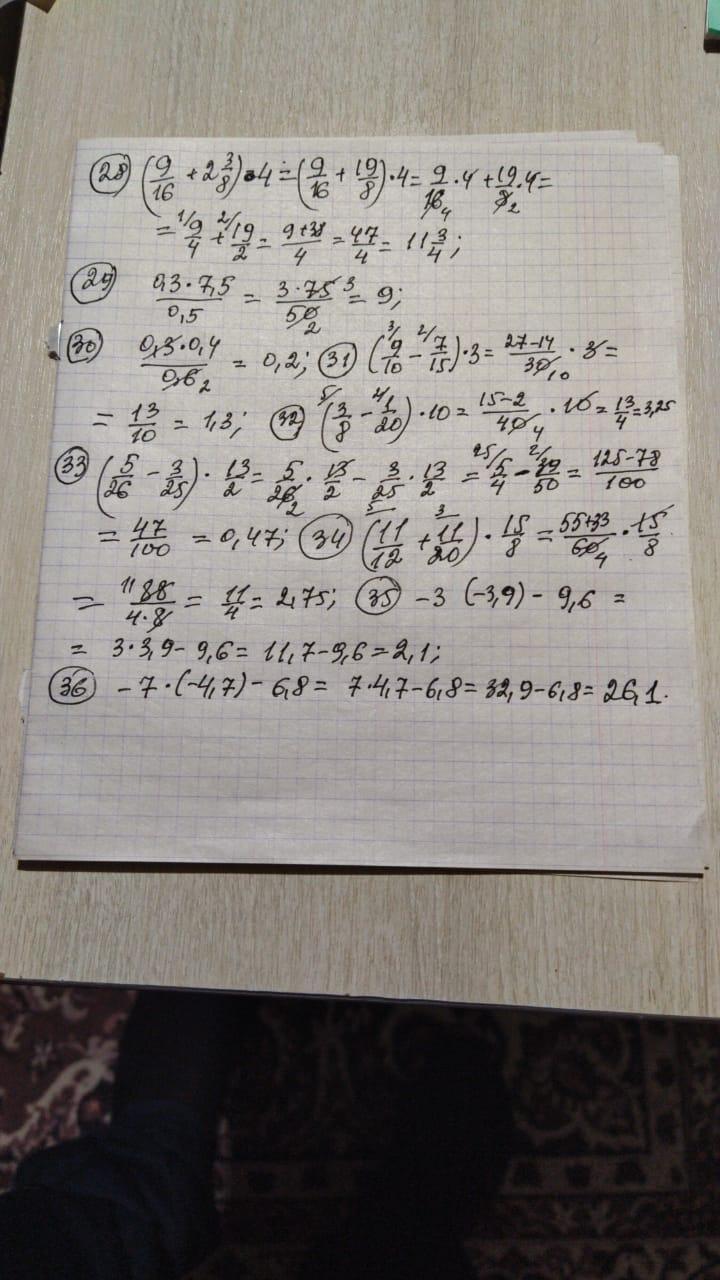 28) (9/16 + 2 3/8) · 4 = (9/16 + 19/8) · 4 = 9/16 · 4 + 19/8 · 4 =
= 9/4 + 19/2 = (9+38)/4 = 47/4 = 11 3/4;
29) (0,3 · 7,5)/0,5 = (3 · 75)/50 = 9;
30) (0,3 · 0,4)/0,6 = 0,2; 31) (9/10 - 7/15) · 3 = (27-14)/30 · 3 =
= 13/10 = 1,3; 32) (3/8 - 1/20) · 10 = (15-2)/40 · 10 = 13/4 = 3,25
33) (5/26 - 3/25) · 13/2 = 5/26 · 13/2 - 3/25 · 13/2 = 5/4 - 39/50 = (125-78)/100
= 47/100 = 0,47; 34) (11/12 + 11/20) · 15/8 = (55+33)/60 · 15/8
= 88/(4·8) = 11/4 = 2,75; 35) -3 (-3,9) - 9,6 =
= 3 · 3,9 - 9,6 = 11,7 - 9,6 = 2,1;
36) -7 · (-4,7) - 6,8 = 7 · 4,7 - 6,8 = 32,9 - 6,8 = 26,1.